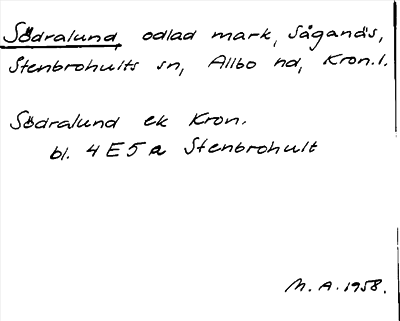 Södralund, odlad mark, Såganäs,
Stenbrohults sn, Allbo hd, Kron.l.
Södralund ek Kron.
bl. 4 E 5 a Stenbrohult
M. A. 1958.